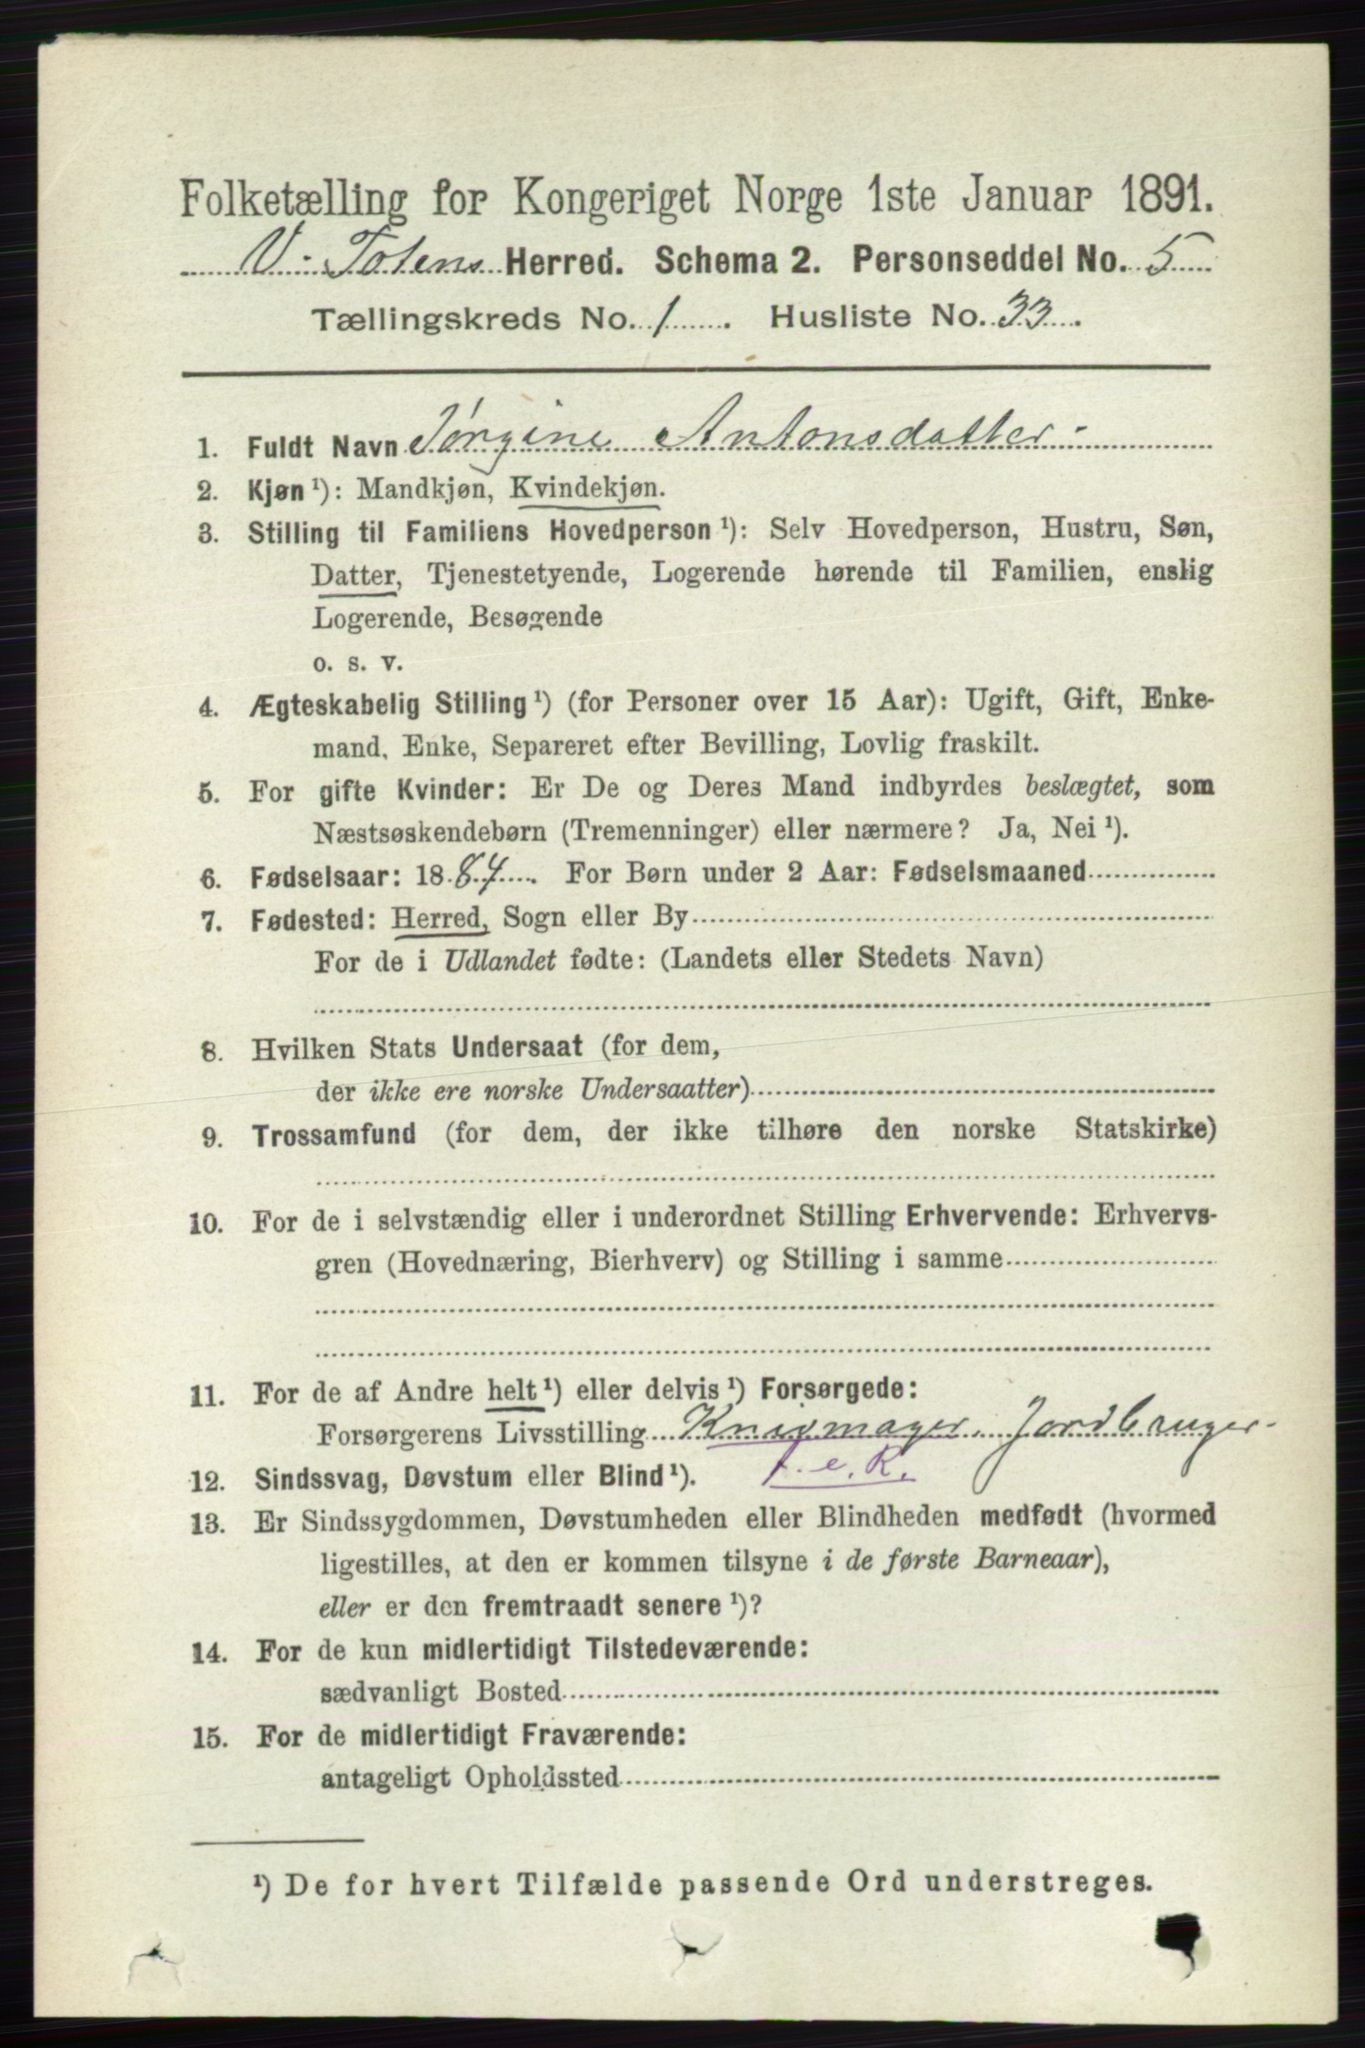 Folketælling for Kongeriget Norge 1ste Januar 1891.
V. Totens Herred. Schema 2. Personseddel No. 5
Tællingskreds No. 1. Husliste No. 33.
1. Fuldt Navn Jørgine Antonsdatter
2. Kjøn ¹): Mandkjøn, Kvindekjøn.
3. Stilling til Familiens Hovedperson ¹): Selv Hovedperson, Hustru, Søn,
Datter, Tjenestetyende, Logerende hørende til Familien, enslig
Logerende, Besøgende
o. s. v.
4. Ægteskabelig Stilling ¹) (for Personer over 15 Aar): Ugift, Gift, Enke-
mand, Enke, Separeret efter Bevilling, Lovlig fraskilt.
5. For gifte Kvinder: Er De og Deres Mand indbyrdes beslægtet, som
Næstsøskendebørn (Tremenninger) eller nærmere? Ja, Nei ¹).
6. Fødselsaar: 1884. For Børn under 2 Aar: Fødselsmaaned
7. Fødested: Herred, Sogn eller By
For de i Udlandet fødte: (Landets eller Stedets Navn)
8. Hvilken Stats Undersaat (for dem,
der ikke ere norske Undersaatter)
9. Trossamfund (for dem, der ikke tilhøre den norske Statskirke)
10. For de i selvstændig eller i underordnet Stilling Erhvervende: Erhvervs-
gren (Hovednæring, Bierhverv) og Stilling i samme
11. For de af Andre helt ¹) eller delvis ¹) Forsørgede:
Forsørgerens Livsstilling Knivmager, Jordbruger
12. Sindssvag, Døvstum eller Blind ¹). e. K.
13. Er Sindssygdommen, Døvstumheden eller Blindheden medfødt (hvormed
ligestilles, at den er kommen tilsyne i de første Barneaar),
eller er den fremtraadt senere ¹)?
14. For de kun midlertidigt Tilstedeværende:
sædvanligt Bosted
15. For de midlertidigt Fraværende:
antageligt Opholdssted
¹) De for hvert Tilfælde passende Ord understreges.